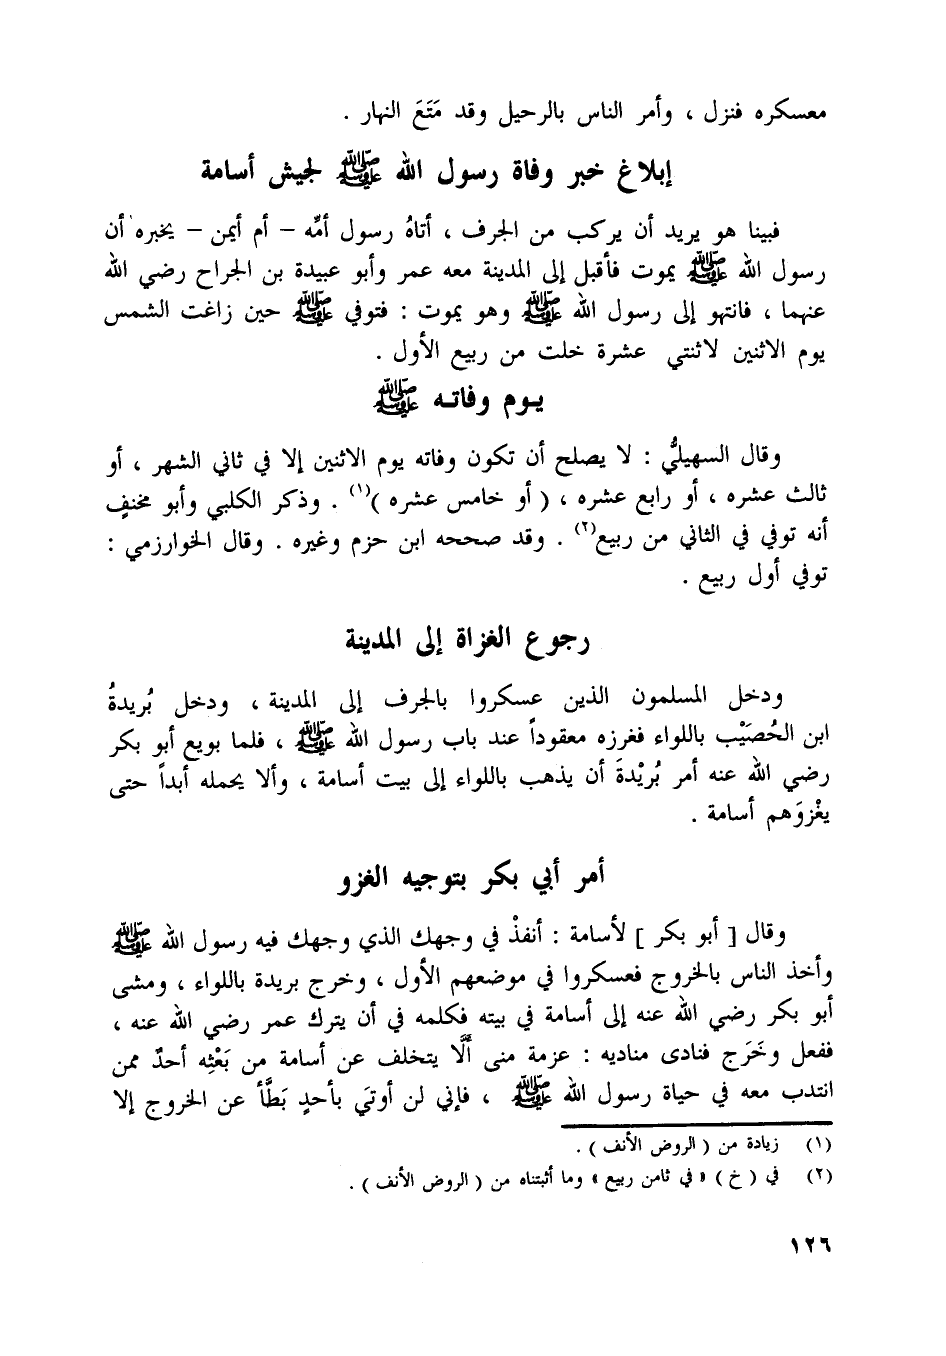 معسكره فنزل ، وأمر الناس بالرحيل وقد مَتَعَ النهار .
إبلاغ خبر وفاة رسول الله ﷺ لجيش أسامة
فبينا هو يريد أن يركب من الجرف ، أتاهُ رسول أمِّه – أم أيمن – يخبره أن
رسول الله ﷺ يموت فأقبل إلى المدينة معه عمر وأبو عبيدة بن الجراح رضي الله
عنهما ، فانتهو إلى رسول الله ﷺ وهو يموت : فتوفي ﷺ حين زاغت الشمس
يوم الاثنين لاثنتي عشرة خلت من ربيع الأول .
يـوم وفاتـه ﷺ
وقال السهيليُّ : لا يصلح أن تكون وفاته يوم الاثنين إلا في ثاني الشهر ، أو
ثالث عشره ، أو رابع عشره ، ( أو خامس عشره )(١) . وذكر الكلبي وأبو مخنفٍ
أنه توفي في الثاني من ربيع(٢) . وقد صححه ابن حزم وغيره . وقال الخوارزمي :
توفي أول ربيع .
رجوع الغزاة إلى المدينة
ودخل المسلمون الذين عسكروا بالجرف إلى المدينة ، ودخل بُريدةُ
ابن الحُصَيْب باللواء فغرزه معقوداً عند باب رسول الله ﷺ ، فلما بويع أبو بكر
رضي الله عنه أمر بُرَيْدةَ أن يذهب باللواء إلى بيت أسامة ، وألا يحمله أبداً حتى
يغْزوَهم أسامة .
أمر أبي بكر بتوجيه الغزو
وقال [ أبو بكر ] لأسامة : أنفذْ في وجهك الذي وجهك فيه رسول الله ﷺ
وأخذ الناس بالخروج فعسكروا في موضعهم الأول ، وخرج بريدة باللواء ، ومشى
أبو بكر رضي الله عنه إلى أسامة في بيته فكلمه في أن يترك عمر رضي الله عنه ،
ففعل وخَرَج فنادى مناديه : عزمة منى ألَّا يتخلف عن أسامة من بَعْثِه أحدٌ ممن
انتدب معه في حياة رسول الله ﷺ ، فإني لن أوتَي بأحدٍ بَطَّأ عن الخروج إلا
(١) زيادة من ( الروض الأنف ) .
(٢) في ( خ ) « في ثامن ربيع » وما أثبتناه من ( الروض الأنف ) .
١٢٦